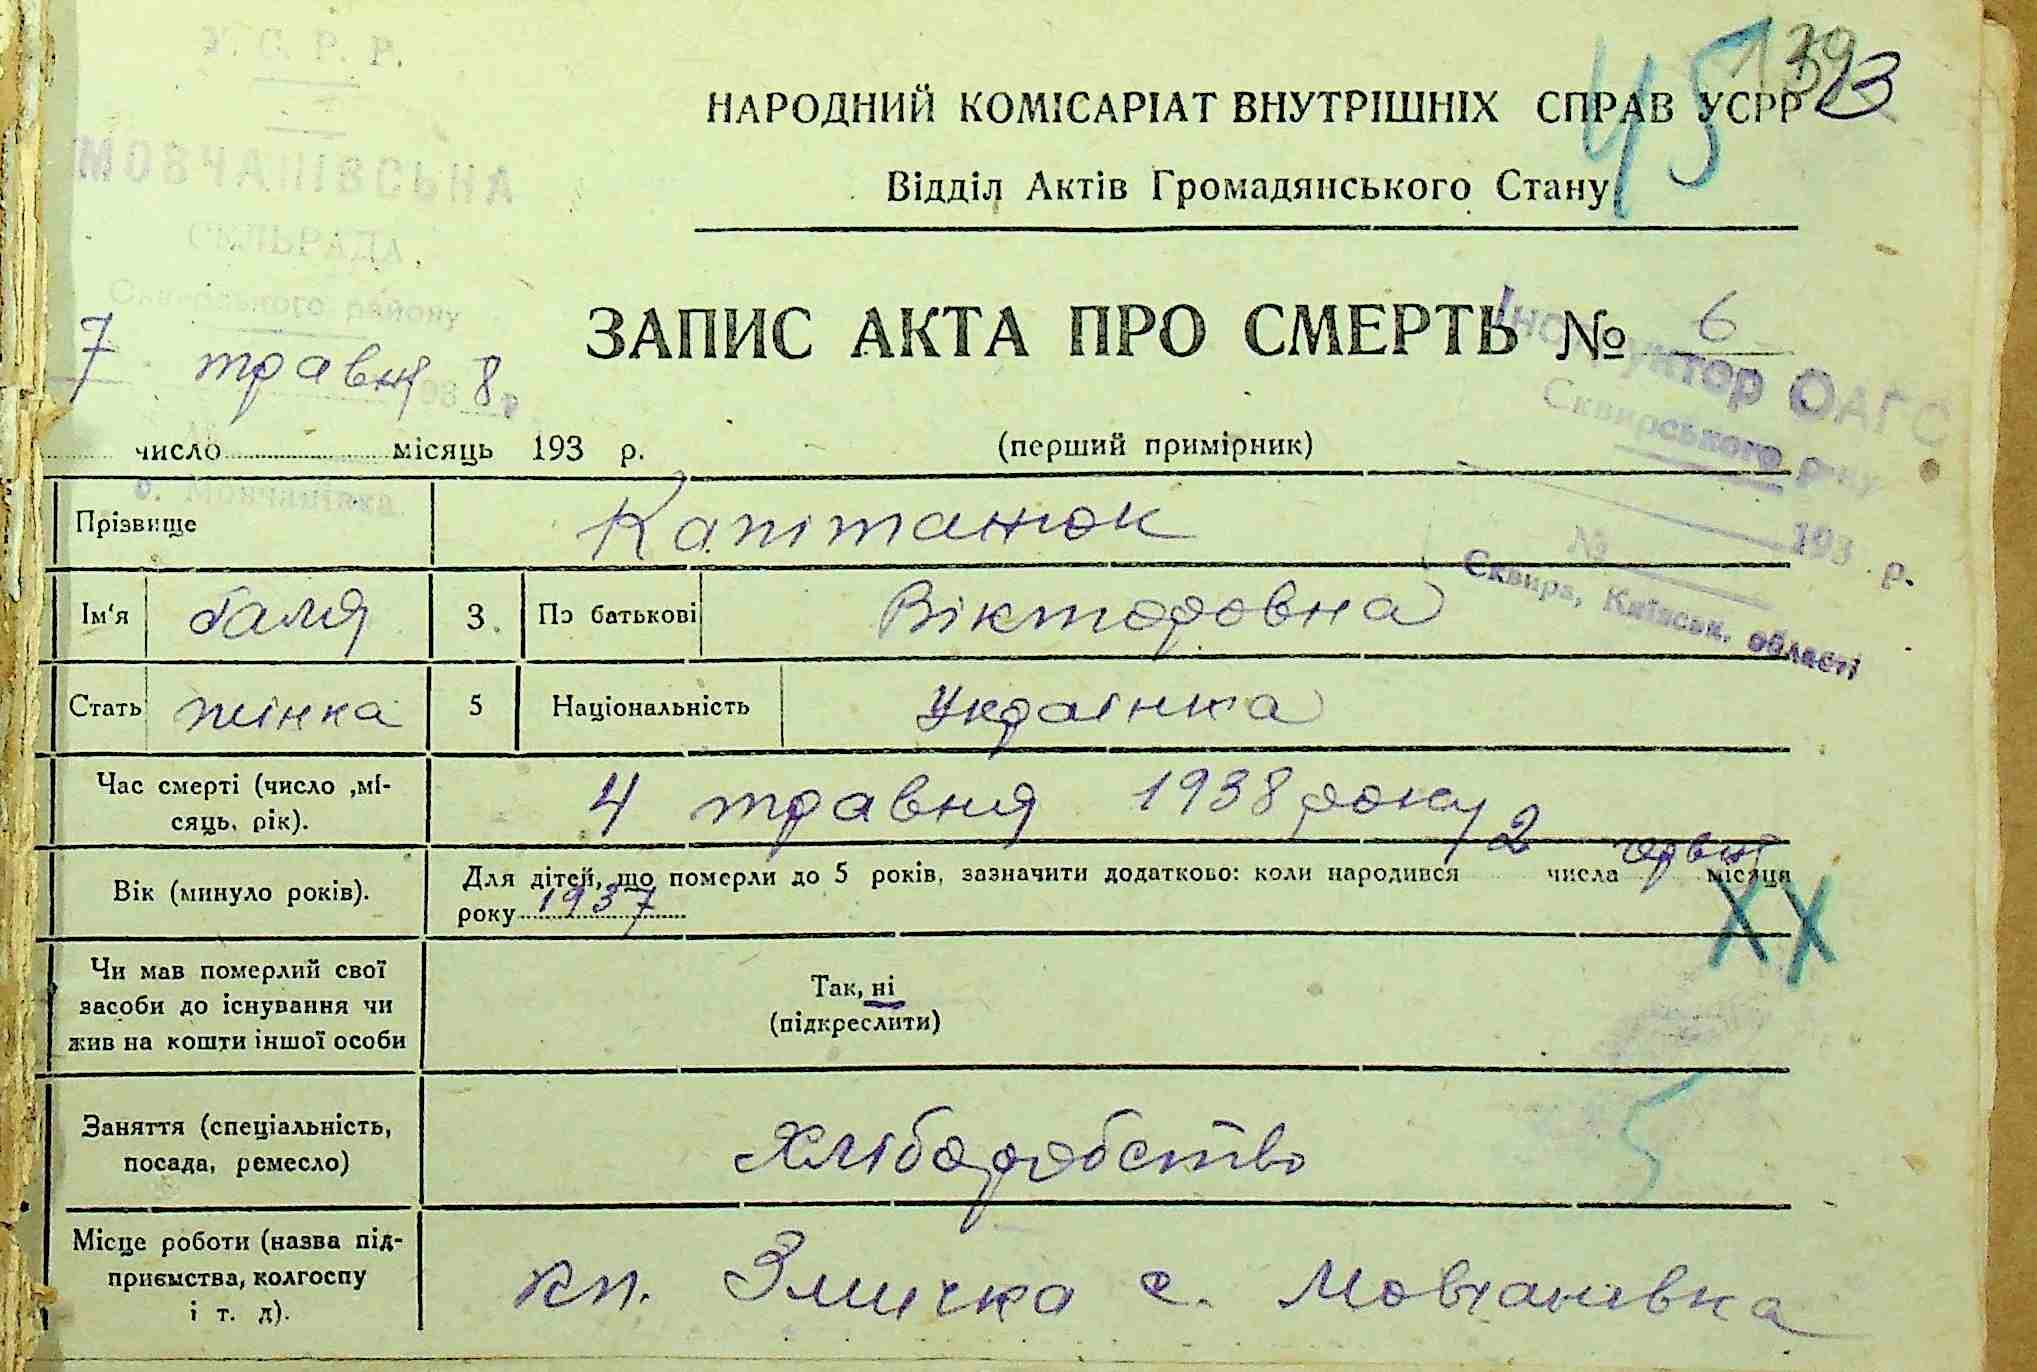 У. С. Р. Р.
МОВЧАНІВСЬКА
СІЛЬРАДА
Сквирського району
45
139
3
НАРОДНИЙ КОМІСАРІАТ ВНУТРІШНІХ СПРАВ УСРР
Відділ Актів Громадянського Стану
ЗАПИС АКТА ПРО СМЕРТЬ № 6
7 травня 8
193 р.
число місяць 193 р.
(перший примірник)
с. Мовчанівка
Інструктор ОАГС
Сквирського р-ну
193 р.
№
Сквира, Київськ. області
Прізвище Капітанюк
Ім'я Галя 3. По батькові Вікторовна
Стать жінка 5 Національність Українка
Час смерті (число ,мі-
сяць, рік).
4 травня 1938 року
Вік (минуло років).
Для дітей, що померли до 5 років, зазначити додатково: коли народився 2 числа червня місяця
року 1937
XX
Чи мав померлий свої
засоби до існування чи
жив на кошти іншої особи
Так, ні
(підкреслити)
Заняття (спеціальність,
посада, ремесло)
Хліборобство
5
Місце роботи (назва під-
приємства, колгоспу
і т. д).
кп. Змичка с. Мовчанівка